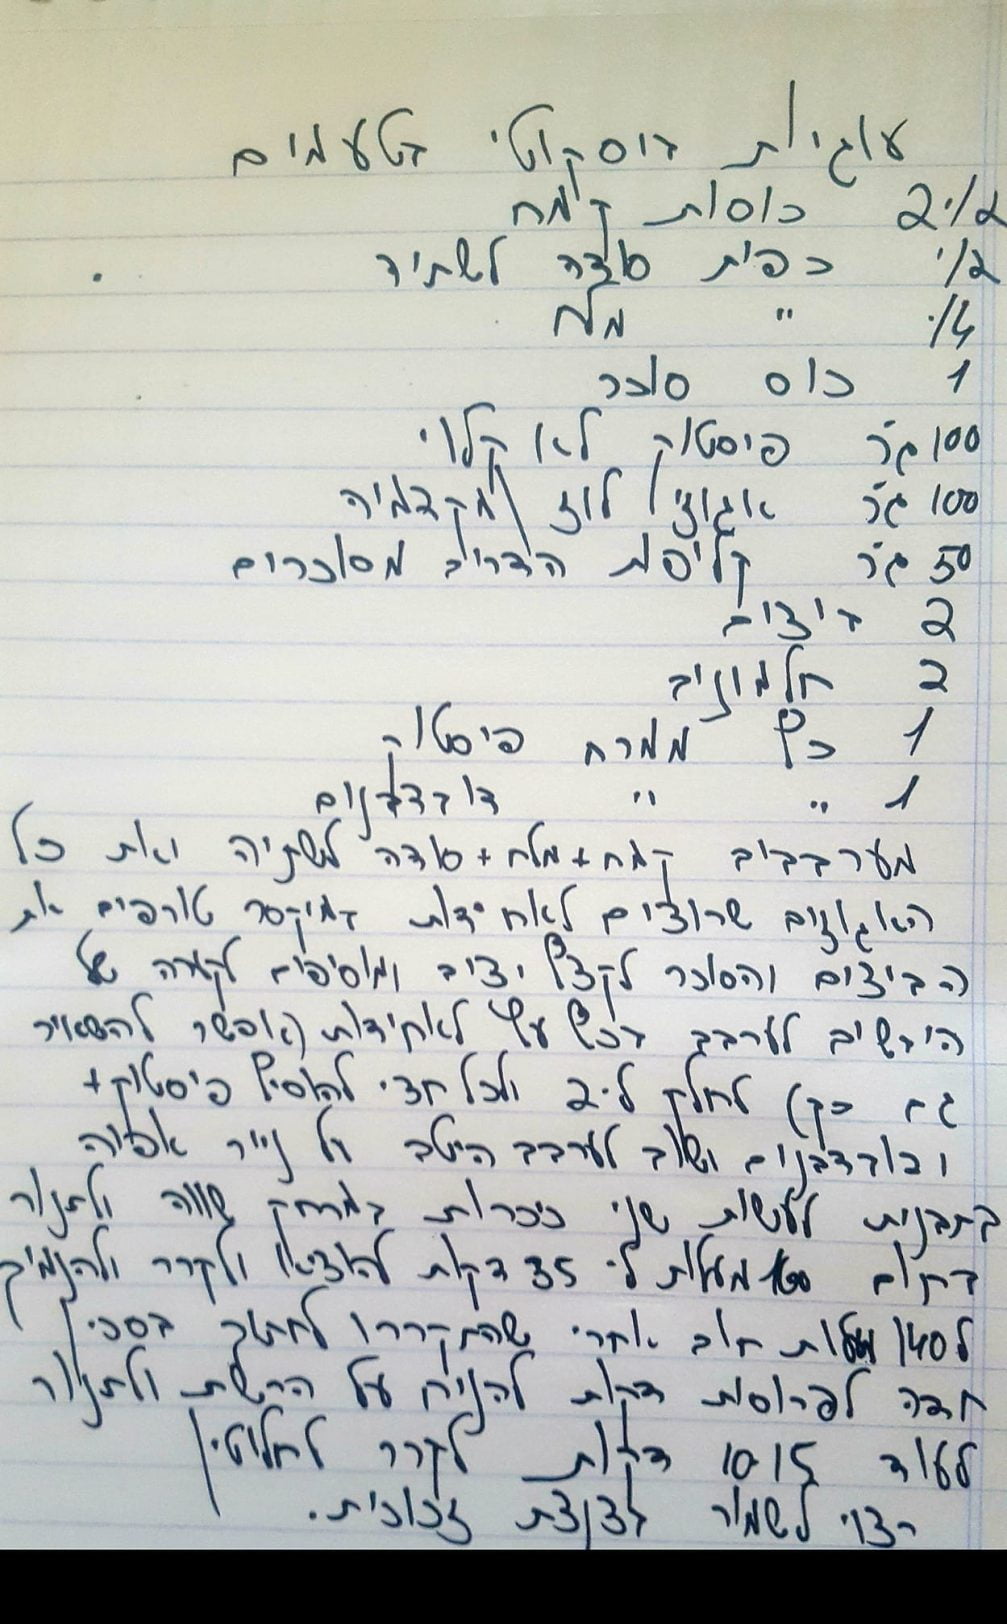 עוגיות ביסקוטי בטעמים
2 1/2 כוסות קמח
1/2 כפית סודה לשתיה
1/4 " מלח
1 כוס סוכר
100 גר' פיסטוק לא קלוי
100 גר' אגוזי לוז / מקדמיה
50 גר' קליפות הדרים מסוכרים
2 ביצים
2 חלמונים
1 כף ממרח פיסטוק
1 " " דובדבנים
מערבבים קמח + מלח + סודה לשתיה ואת כל
האגוזים שרוצים לאחידות במיקסר טורפים את
הביצים והסוכר לקצף יציב ומוסיפים לקערה של
היבשים לערבב בכף עץ לאחידות (אפשר להשאיר
גם כך) לחלק ל-2 ולכל חצי להוסיף פיסטוק +
ודובדבנים ושוב לערבב היטב על נייר אפיה
בתבנית לעשות שני כיכרות במרחק שווה ולתנור
בחום 160 מעלות ל- 35 דקות להוציא ולקרר ולהנמיך
ל140 מעלות חום אחרי שהתקררו לחתוך בסכין
חדה לפרוסות דקות להניח על הרשת ולתנור
לעוד 10-15 דקות לקרר לחלוטין
רצוי לשמור בצנצנת זכוכית.